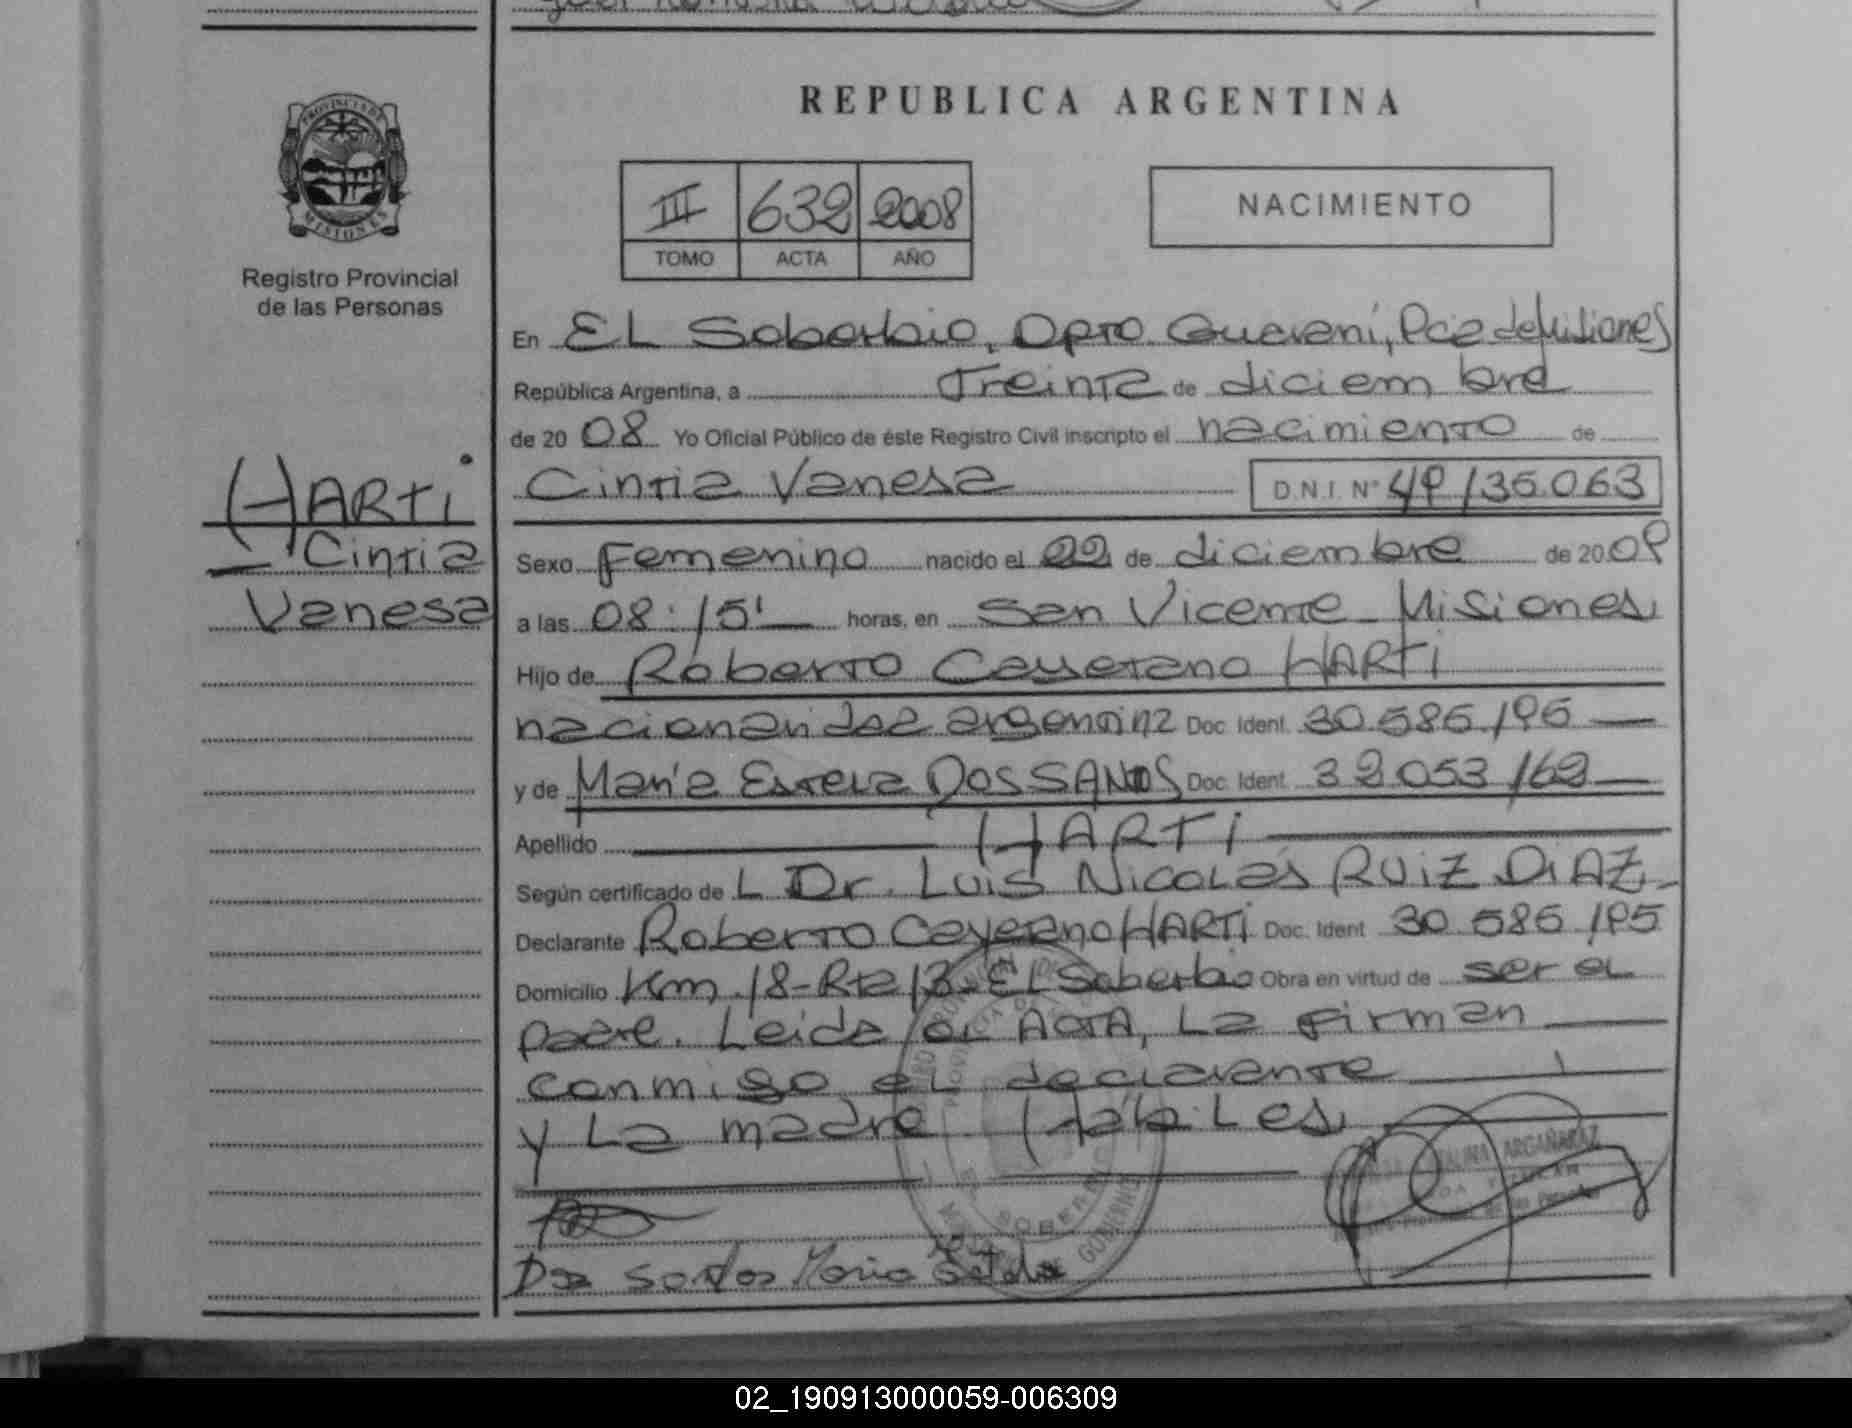 REPUBLICA ARGENTINA
PROVINCIA DE
MISIONES
Registro Provincial
de las Personas
III 632 2008
TOMO ACTA AÑO
NACIMIENTO
En EL Soberbio, Dpto. Guaraní, Pcia de Misiones
República Argentina, a Treinta de diciembre
de 20 08 Yo Oficial Público de éste Registro Civil inscripto el nacimiento de
HARTi
Cintia
Vanesa
Cintia Vanesa D.N.I. N° 49/35.063
Sexo Femenino nacido el 22 de diciembre de 20 08
a las 08:15' horas, en San Vicente Misiones
Hijo de Roberto Cayetano HARTi
nacionalidad argentina Doc. Ident. 30.586.196
y de María Estela DOS SANTOS Doc. Ident. 32.053.162
Apellido HARTi
Según certificado de L Dr. Luis Nicolás RUiZ DiAZ
Declarante Roberto Cayetano HARTi Doc. Ident 30 586 195
Domicilio Km. 18-Rta 13-El Soberbio Obra en virtud de ser el
padre. Leida el ACTA, La firman
conmigo el declarante
y La madre Hábiles
ARGAÑARAZ
Dos santos Maria
02_190913000059-006309